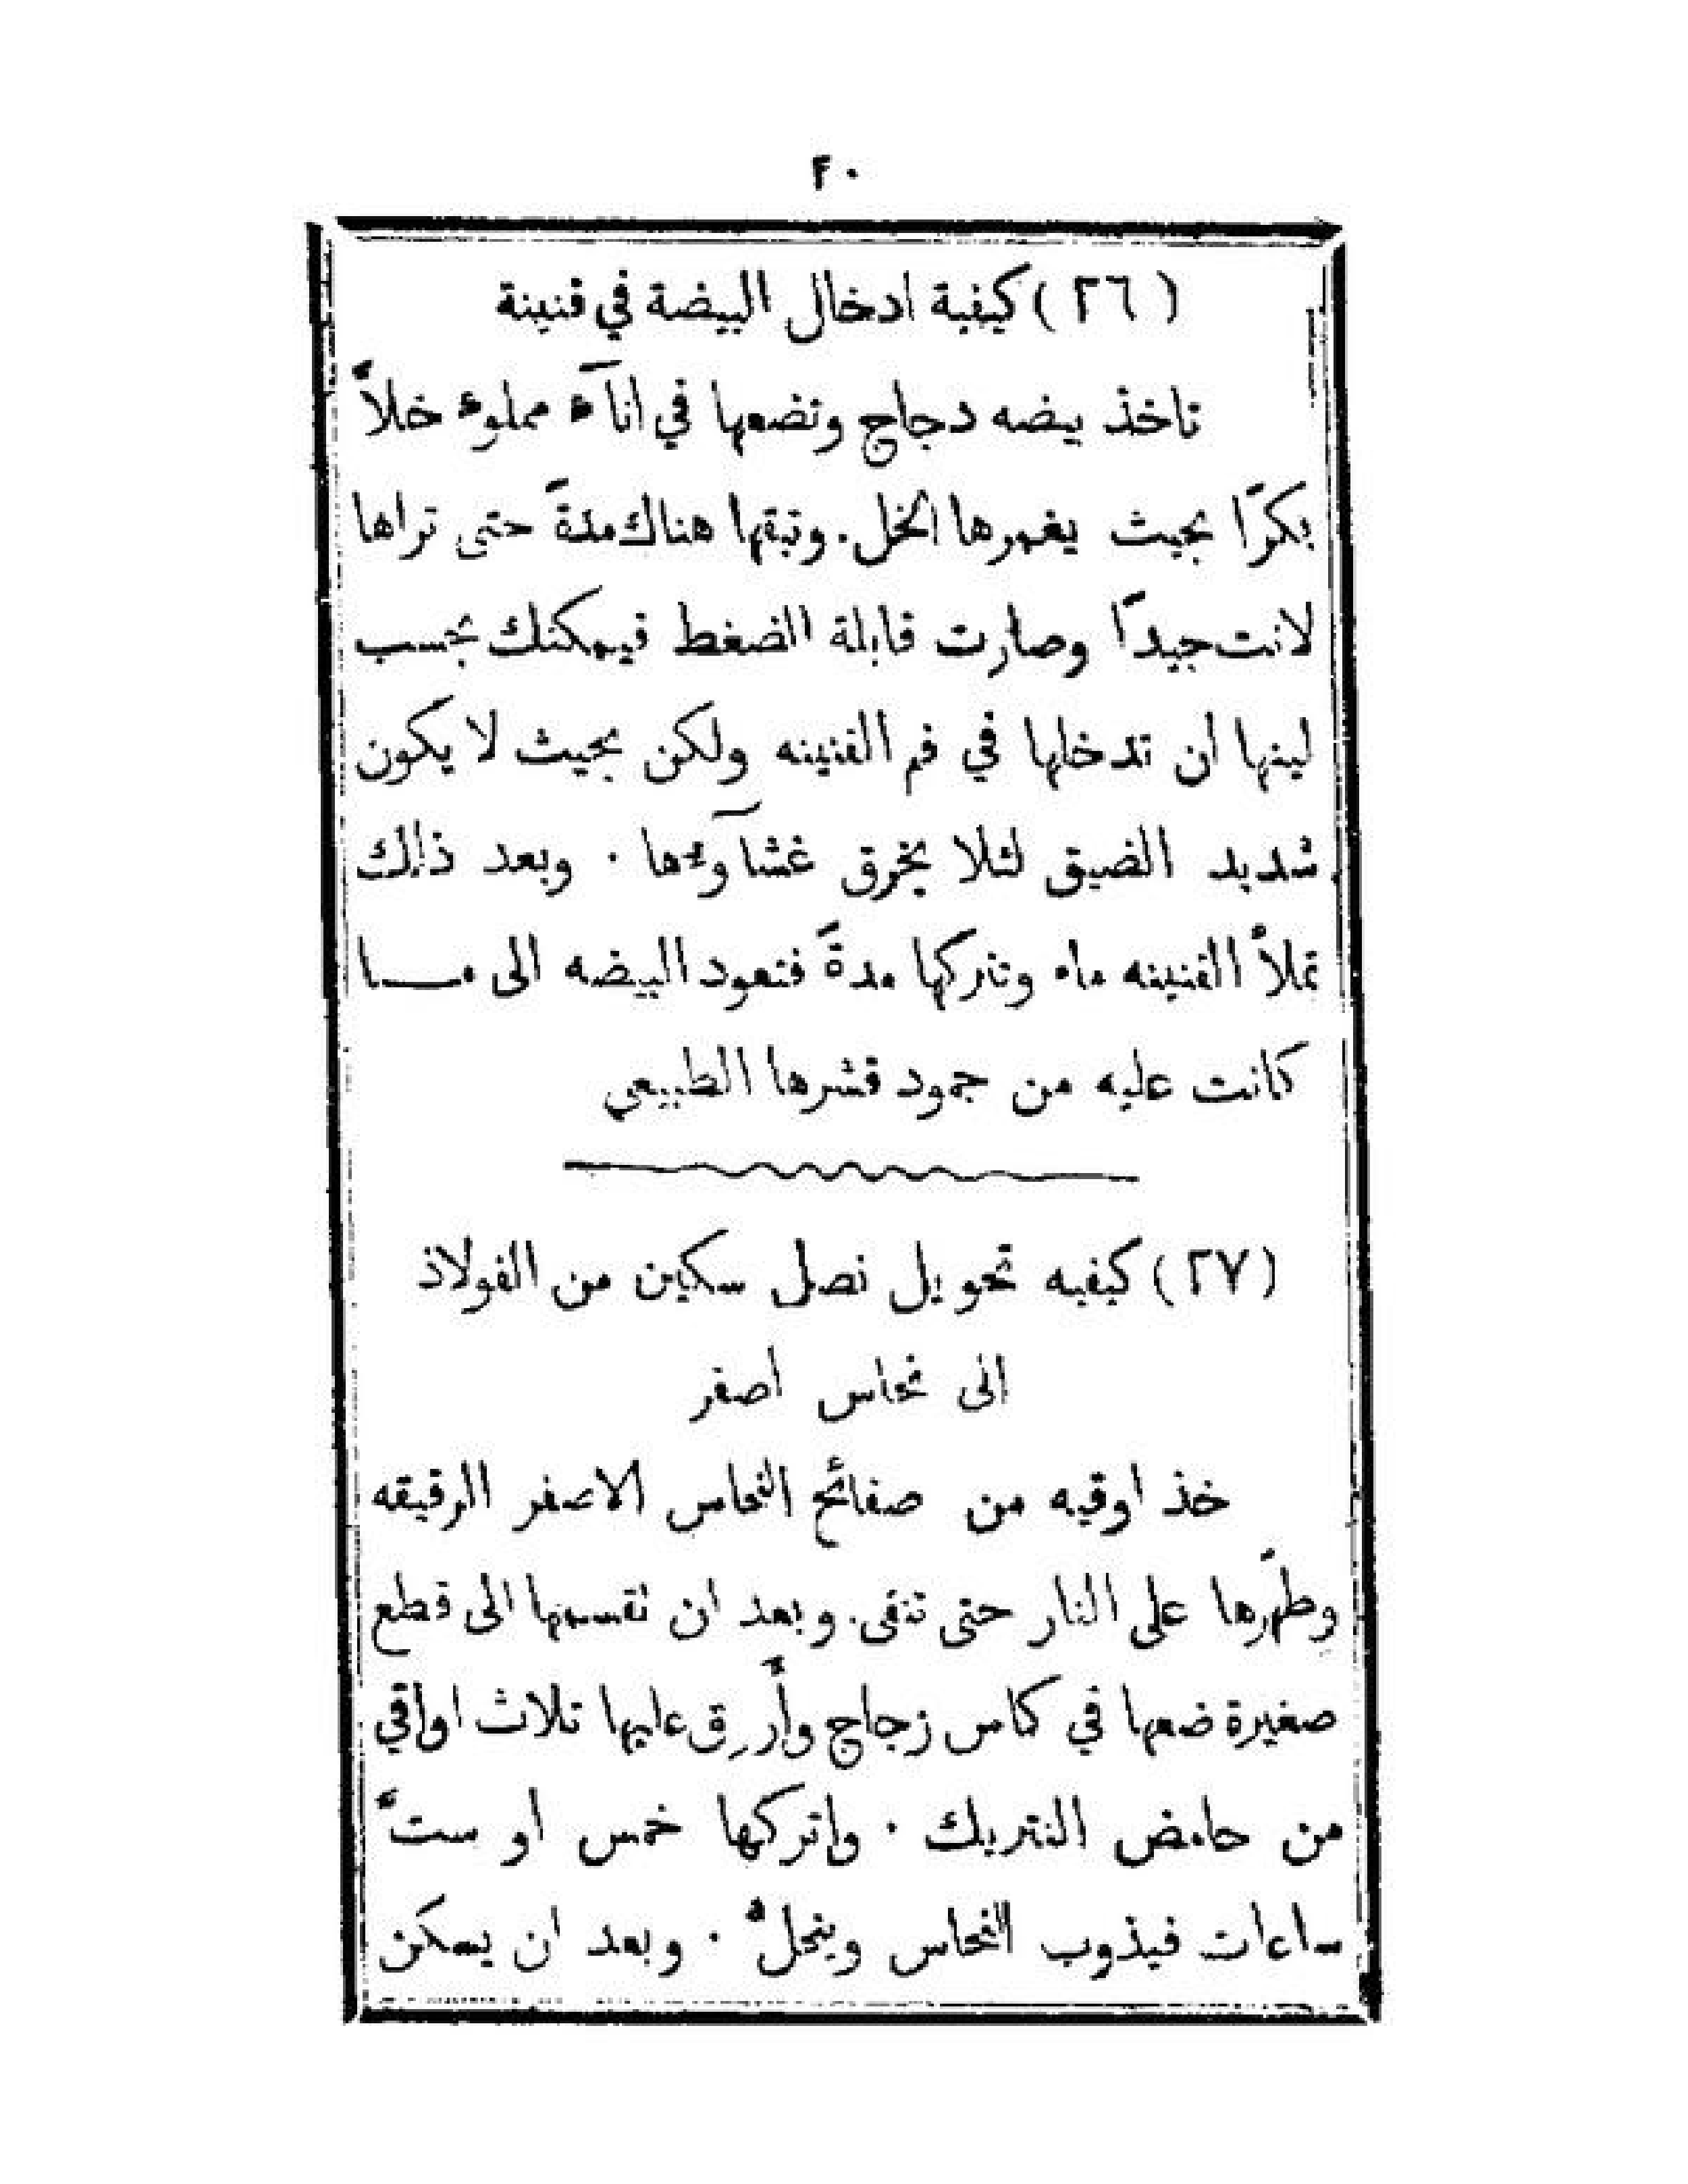 ٢٠
(٢٦) كيفية ادخال البيضة في قنينة
تاخذ بيضه دجاج وتضعها في انآء مملوء خلاًّ
بكرًا بحيث يغمرها الخل. وتبقها هناك مدةً حتى تراها
لانت جيدًا وصارت قابلة الضغط فيمكنك بحسب
لينها ان تدخلها في فم القنينه ولكن بحيث لا يكون
شديد الضيق لئلا يخرق غشآوءها . وبعد ذلك
تملأ القنينه ماء وتتركها مدةً فتعود البيضه الى مـــا
كانت عليه من جمود قشرها الطبيعي
(٢٧) كيفيه تحويل نصل سكين من الفولاذ
الى نحاس اصفر
خذ اوقيه من صفائح النحاس الاصفر الرقيقه
وطهّرها على النار حتى تنقى. وبعد ان تقسمها الى قطع
صغيرة ضعها في كاس زجاج وأَرِق عليها ثلاث اواقي
من حامض النتريك . واتركها خمس او ستّ
ساعات فيذوب النحاس وينحلُّ . وبعد ان يسكن